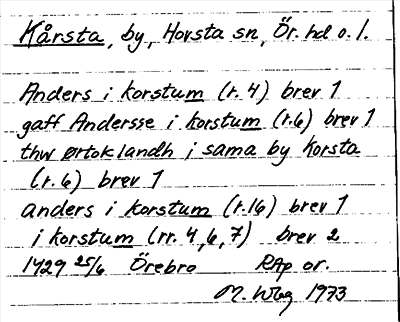 Kårsta, by, Hovsta sn, Ör. hd o. l.
Anders i korstum (r. 4) brev 1
gaff Andersse i korstum (r. 6) brev 1
thw ørtoklandh i sama by Korsta
(r. 6) brev 1
anders i korstum (r. 16) brev 1
i korstum (rr. 4, 6, 7) brev 2
1429 25/6 Örebro RAp or.
M. Wbg 1973